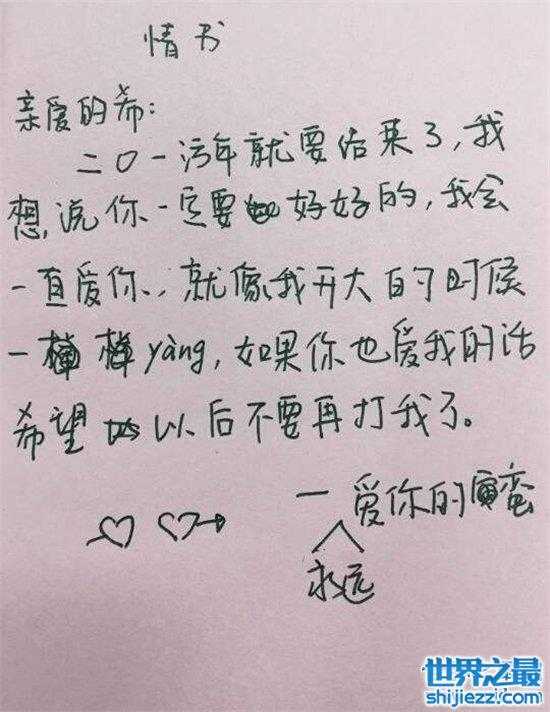 情书
亲爱的希:
二〇一污年就要结束了,我
想说你一定要好好的,我会
一直爱你,就像我开大的时候
一yàng,如果你也爱我的话
希望以后不要再打我了。
一爱你的蛮
永远
世界之最
shijiezzi.com